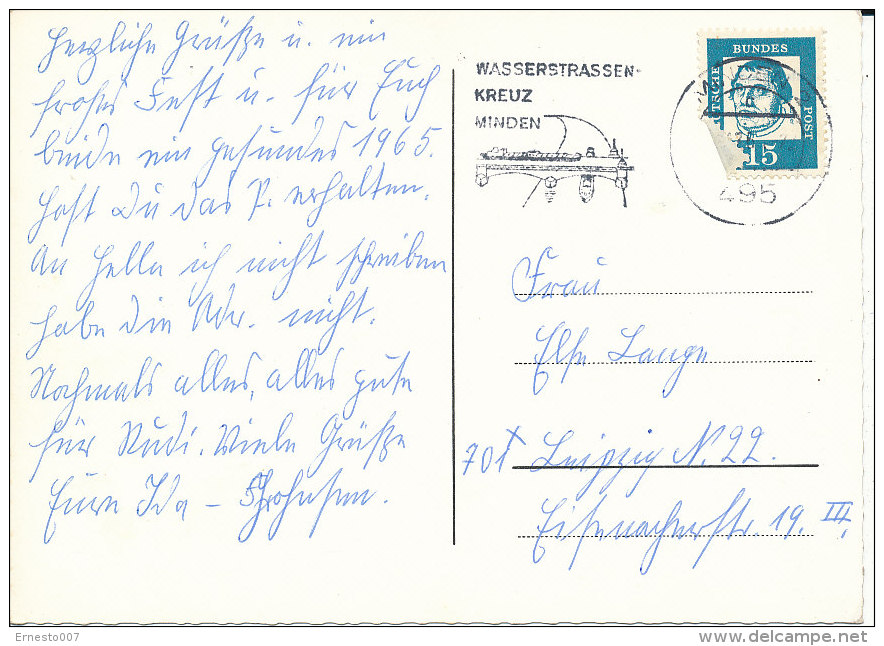 Herzliche Grüße u. ein
frohes Fest u. für Euch
beide ein gesundes 1965.
Hast Du das P. erhalten.
An Hella ich nicht schreiben
habe die Adr. nicht.
Nochmals alles, alles gute
für Rudi. Viele Grüße
Eure Ida –
WASSERSTRASSEN-
KREUZ
MINDEN
DEUTSCHE BUNDESPOST
15
495
Frau
Else Lange
701 Leipzig N. 22.
Eisenacherstr. 19. III.
Ernesto007
www.delcampe.net